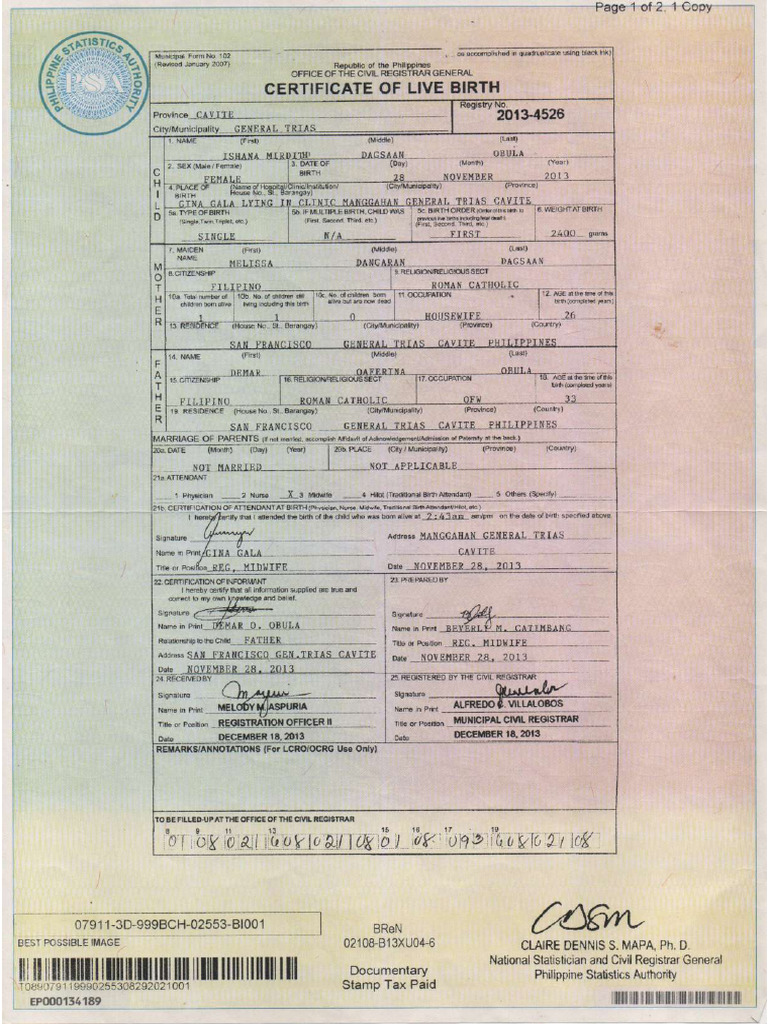 Page 1 of 2, 1 Copy
PHILIPPINE STATISTICS AUTHORITY
PSA
Municipal Form No. 102
(Revised January 2007)
(To be accomplished in quadruplicate using black ink)
Republic of the Philippines
OFFICE OF THE CIVIL REGISTRAR GENERAL
CERTIFICATE OF LIVE BIRTH
Province CAVITE
Registry No.
2013-4526
City/Municipality GENERAL TRIAS
CHILD
1. NAME (First) (Middle) (Last)
ISHANA MIRDITH DAGSAAN OBULA
2. SEX (Male / Female) 3. DATE OF BIRTH (Day) (Month) (Year)
FEMALE 28 NOVEMBER 2013
4. PLACE OF BIRTH (Name of Hospital/Clinic/Institution/ House No., St., Barangay) (City/Municipality) (Province)
GINA GALA LYING IN CLINIC MANGGAHAN GENERAL TRIAS CAVITE
5a. TYPE OF BIRTH (Single, Twin, Triplet, etc.) 5b. IF MULTIPLE BIRTH, CHILD WAS (First, Second, Third, etc.) 5c. BIRTH ORDER (Order of this birth to previous live births including fetal death) (First, Second, Third, etc.) 6. WEIGHT AT BIRTH
SINGLE N/A FIRST 2400 grams
MOTHER
7. MAIDEN NAME (First) (Middle) (Last)
MELISSA DANGARAN DAGSAAN
8. CITIZENSHIP 9. RELIGION/RELIGIOUS SECT
FILIPINO ROMAN CATHOLIC
10a. Total number of children born alive 10b. No. of children still living including this birth 10c. No. of children born alive but are now dead 11. OCCUPATION 12. AGE at the time of this birth (completed years)
1 1 0 HOUSEWIFE 26
13. RESIDENCE (House No., St., Barangay) (City/Municipality) (Province) (Country)
SAN FRANCISCO GENERAL TRIAS CAVITE PHILIPPINES
FATHER
14. NAME (First) (Middle) (Last)
DEMAR OAFERINA OBULA
15. CITIZENSHIP 16. RELIGION/RELIGIOUS SECT 17. OCCUPATION 18. AGE at the time of this birth (completed years)
FILIPINO ROMAN CATHOLIC OFW 33
19. RESIDENCE (House No., St., Barangay) (City/Municipality) (Province) (Country)
SAN FRANCISCO GENERAL TRIAS CAVITE PHILIPPINES
MARRIAGE OF PARENTS (If not married, accomplish Affidavit of Acknowledgement/Admission of Paternity at the back.)
20a. DATE (Month) (Day) (Year) 20b. PLACE (City / Municipality) (Province) (Country)
NOT MARRIED NOT APPLICABLE
21a. ATTENDANT
1 Physician 2 Nurse X 3 Midwife 4 Hilot (Traditional Birth Attendant) 5 Others (Specify)
21b. CERTIFICATION OF ATTENDANT AT BIRTH (Physician, Nurse, Midwife, Traditional Birth Attendant/Hilot, etc.)
I hereby certify that I attended the birth of the child who was born alive at 2:43am am/pm on the date of birth specified above.
Signature Address MANGGAHAN GENERAL TRIAS
Name in Print GINA GALA CAVITE
Title or Position REG. MIDWIFE Date NOVEMBER 28, 2013
22. CERTIFICATION OF INFORMANT 23. PREPARED BY
I hereby certify that all information supplied are true and
correct to my own knowledge and belief.
Signature Signature
Name in Print DEMAR O. OBULA Name in Print BEVERLY M. CATIMBANG
Relationship to the Child FATHER Title or Position REG. MIDWIFE
Address SAN FRANCISCO GEN.TRIAS CAVITE Date NOVEMBER 28, 2013
Date NOVEMBER 28, 2013
24. RECEIVED BY 25. REGISTERED BY THE CIVIL REGISTRAR
Signature Signature
Name in Print MELODY M. ASPURIA Name in Print ALFREDO C. VILLALOBOS
Title or Position REGISTRATION OFFICER II Title or Position MUNICIPAL CIVIL REGISTRAR
Date DECEMBER 18, 2013 Date DECEMBER 18, 2013
REMARKS/ANNOTATIONS (For LCRO/OCRG Use Only)
TO BE FILLED-UP AT THE OFFICE OF THE CIVIL REGISTRAR
8 9 11 13 15 16 17 19
07911-3D-999BCH-02553-BI001
BEST POSSIBLE IMAGE
BReN
02108-B13XU04-6
Documentary
Stamp Tax Paid
CLAIRE DENNIS S. MAPA, Ph. D.
National Statistician and Civil Registrar General
Philippine Statistics Authority
T08907911999025530829202100​1
EP000134189